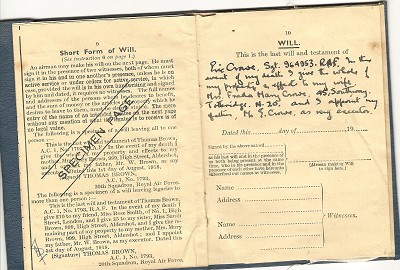 Short Form of Will.
(See instruction 6 on page 1.)
An airman may make his will on the next page. He must
sign it in the presence of two witnesses, both of whom must
sign it in his and in one another's presence, unless he is on
active service or under orders for active service, in which
case, provided the will is in his own handwriting and signed
by him and dated, it requires no witnesses. The full names
and addresses of the persons whom he desires to benefit,
and the sum of money or the articles or property which he
desires to leave to them, must be clearly stated. The mere
entry of the name of an intended legatee on the next page
without any mention of what the legatee is to receive is of
no legal value.
The following is a specimen of a will leaving all to one
person :—
This is the last will and testament of Thomas Brown,
A.C. 1, No. 1793, R.A.F. In the event of my death I
give the whole of my property and effects to my
mother, Mary Brown, 999, High Street, Aldershot,
and I appoint my father, Mr. W. Brown, as my
executor. Dated this 1st of August, 1918.
(Signature) THOMAS BROWN,
A.C. 1, No. 1793,
20th Squadron, Royal Air Force.
The following is a specimen of a will leaving legacies to
more than one person :—
This is the last will and testament of Thomas Brown,
A.C. 1, No. 1793, R.A.F. In the event of my death I
give £10 to my friend, Miss Rose Smith, of No. 1, High
Street, London, and I give £5 to my sister, Miss Sarah
Brown, 999, High Street, Aldershot, and I give the re-
maining part of my property to my mother, Mrs. Mary
Brown, 999, High Street, Aldershot ; and I appoint
my father, Mr. W. Brown, as my executor. Dated this
1st of August, 1918.
(Signature) THOMAS BROWN,
A.C. 1, No. 1793,
20th Squadron, Royal Air Force.
SPECIMEN PAGE
10
WILL.
This is the last will and testament of
Eric Crase, Sgt. 964953. RAF. In the
event of my death I give the whole of
my property & effects to my wife
Mrs. Freda Mary Crase,
Totteridge. N.20. and I appoint my
father, Mr. E. Crase, as my executor.
Dated this day of 19
Signed by the above named
as his last will and in the presence of
us both being present at the same
time, who in his presence and in the
presence of each other have hereunto
subscribed our names as witnesses.
(Airman making Will
to sign here.)
Name
Address
Name
Address
Witnesses.